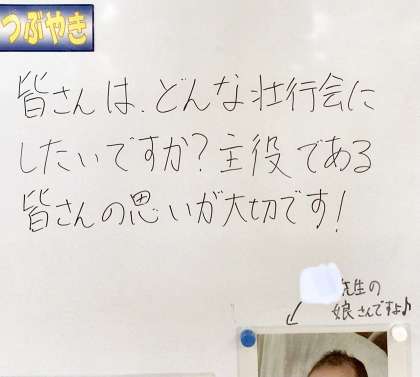 つぶやき
皆さんは、どんな壮行会に
したいですか?主役である
皆さんの思いが大切です!
先生の
娘さんですよ♪